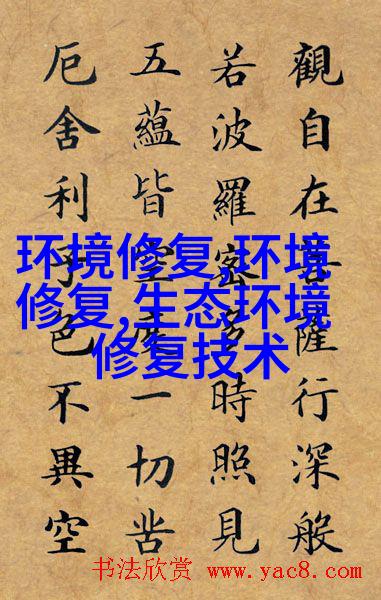 觀自在菩薩行深般
若波羅密多時照見
五蘊皆空度一切苦
厄舍利子色不異空
环境修复,环境
修复,生态环境
修复技术
书法欣赏 www.yac8.com